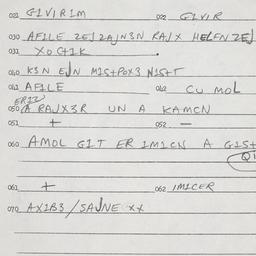 021 GIVIRIM 022 GIVIR
030 AFILE ZEJZAJN3N RAJX HELEN ZEJ
031 XOCHIK
040 K3N EJN MIS+POX3 NIS+T
041 AFILE 042 CU MOL
ERIZ
050 A RAJX3R UN A KAMCN
051 + 052 -
060 AMOL GIT ER IMICN A GIST
QI
061 + 062 IMICER
070 AXIB3/SAJNE XX